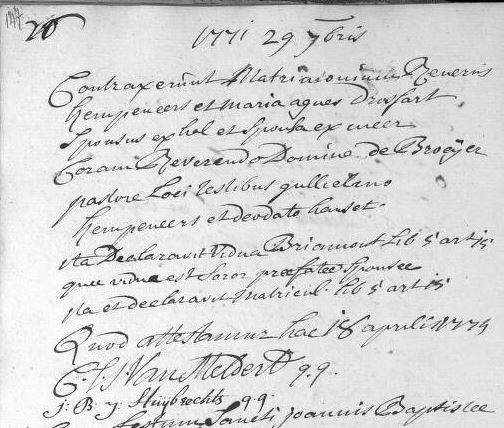 20
1771 29 7bris
Contraxerunt Matrimonium Reneris
hempeneers et maria agnes Drossart
Sponsus ex hal et Sponsa ex meer
Coram Reverendo Domino de Broeÿer
pastore Loci testibus guilielmo
hempeneers et deodato hauset
ita Declaravit vidua Briamont Lib 5 art 15
quæ vidua est Soror præfatæ Sponsæ
ita et declaravit matricul. lib 5 art 15
Quod attestamur hac 18 aprilis 1779
Van Meldert q.q.
j: B: y: Huybrechts q.q.
festum Sancti joannis Baptistæ